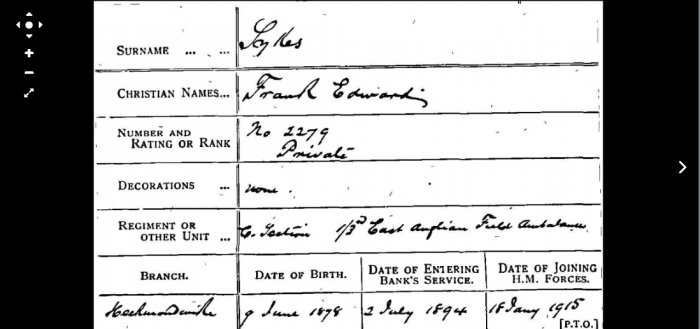 SURNAME ... ... Sykes
CHRISTIAN NAMES... Frank Edward
NUMBER AND
RATING OR RANK
No 2279
Private
DECORATIONS ... none.
REGIMENT OR
OTHER UNIT ...
C. Section 1/3rd East Anglian Field Ambulance
BRANCH.
DATE OF BIRTH.
DATE OF ENTERING
BANK'S SERVICE.
DATE OF JOINING
H.M. FORCES.
Heckmondwike 9 June 1878 2 July 1894 18 Jany 1915
[P.T.O.]